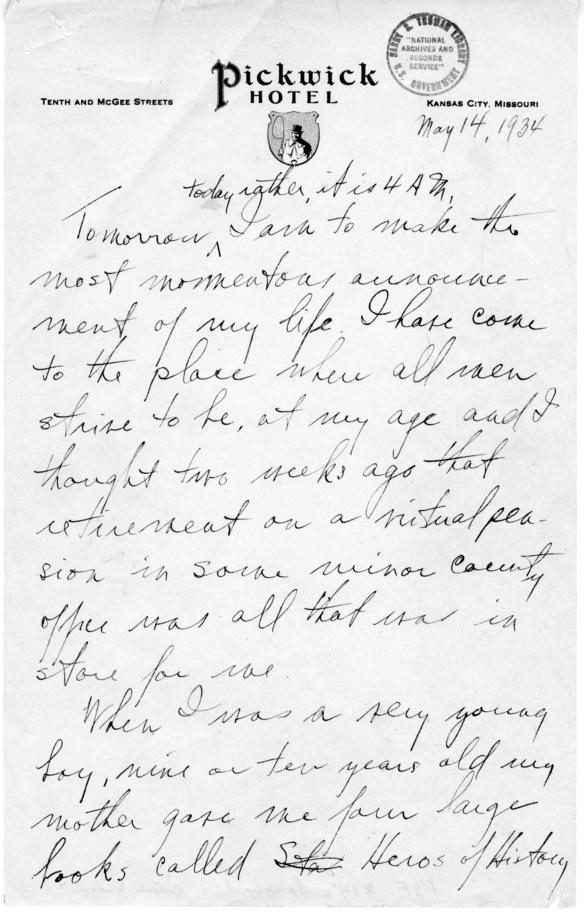 HARRY S. TRUMAN LIBRARY
"NATIONAL
ARCHIVES AND
RECORDS
SERVICE"
U.S. GOVERNMENT
Pickwick
HOTEL
TENTH AND MCGEE STREETS
KANSAS CITY, MISSOURI
May 14, 1934
today rather, it is 4 A.M.
Tomorrow, I am to make the
most momentous announce-
ment of my life. I have come
to the place where all men
strive to be, at my age and I
thought two weeks ago that
retirement on a virtual pen-
sion in some minor county
office was all that was in
store for me.
When I was a very young
boy, nine or ten years old my
mother gave me four large
books called Heros of History